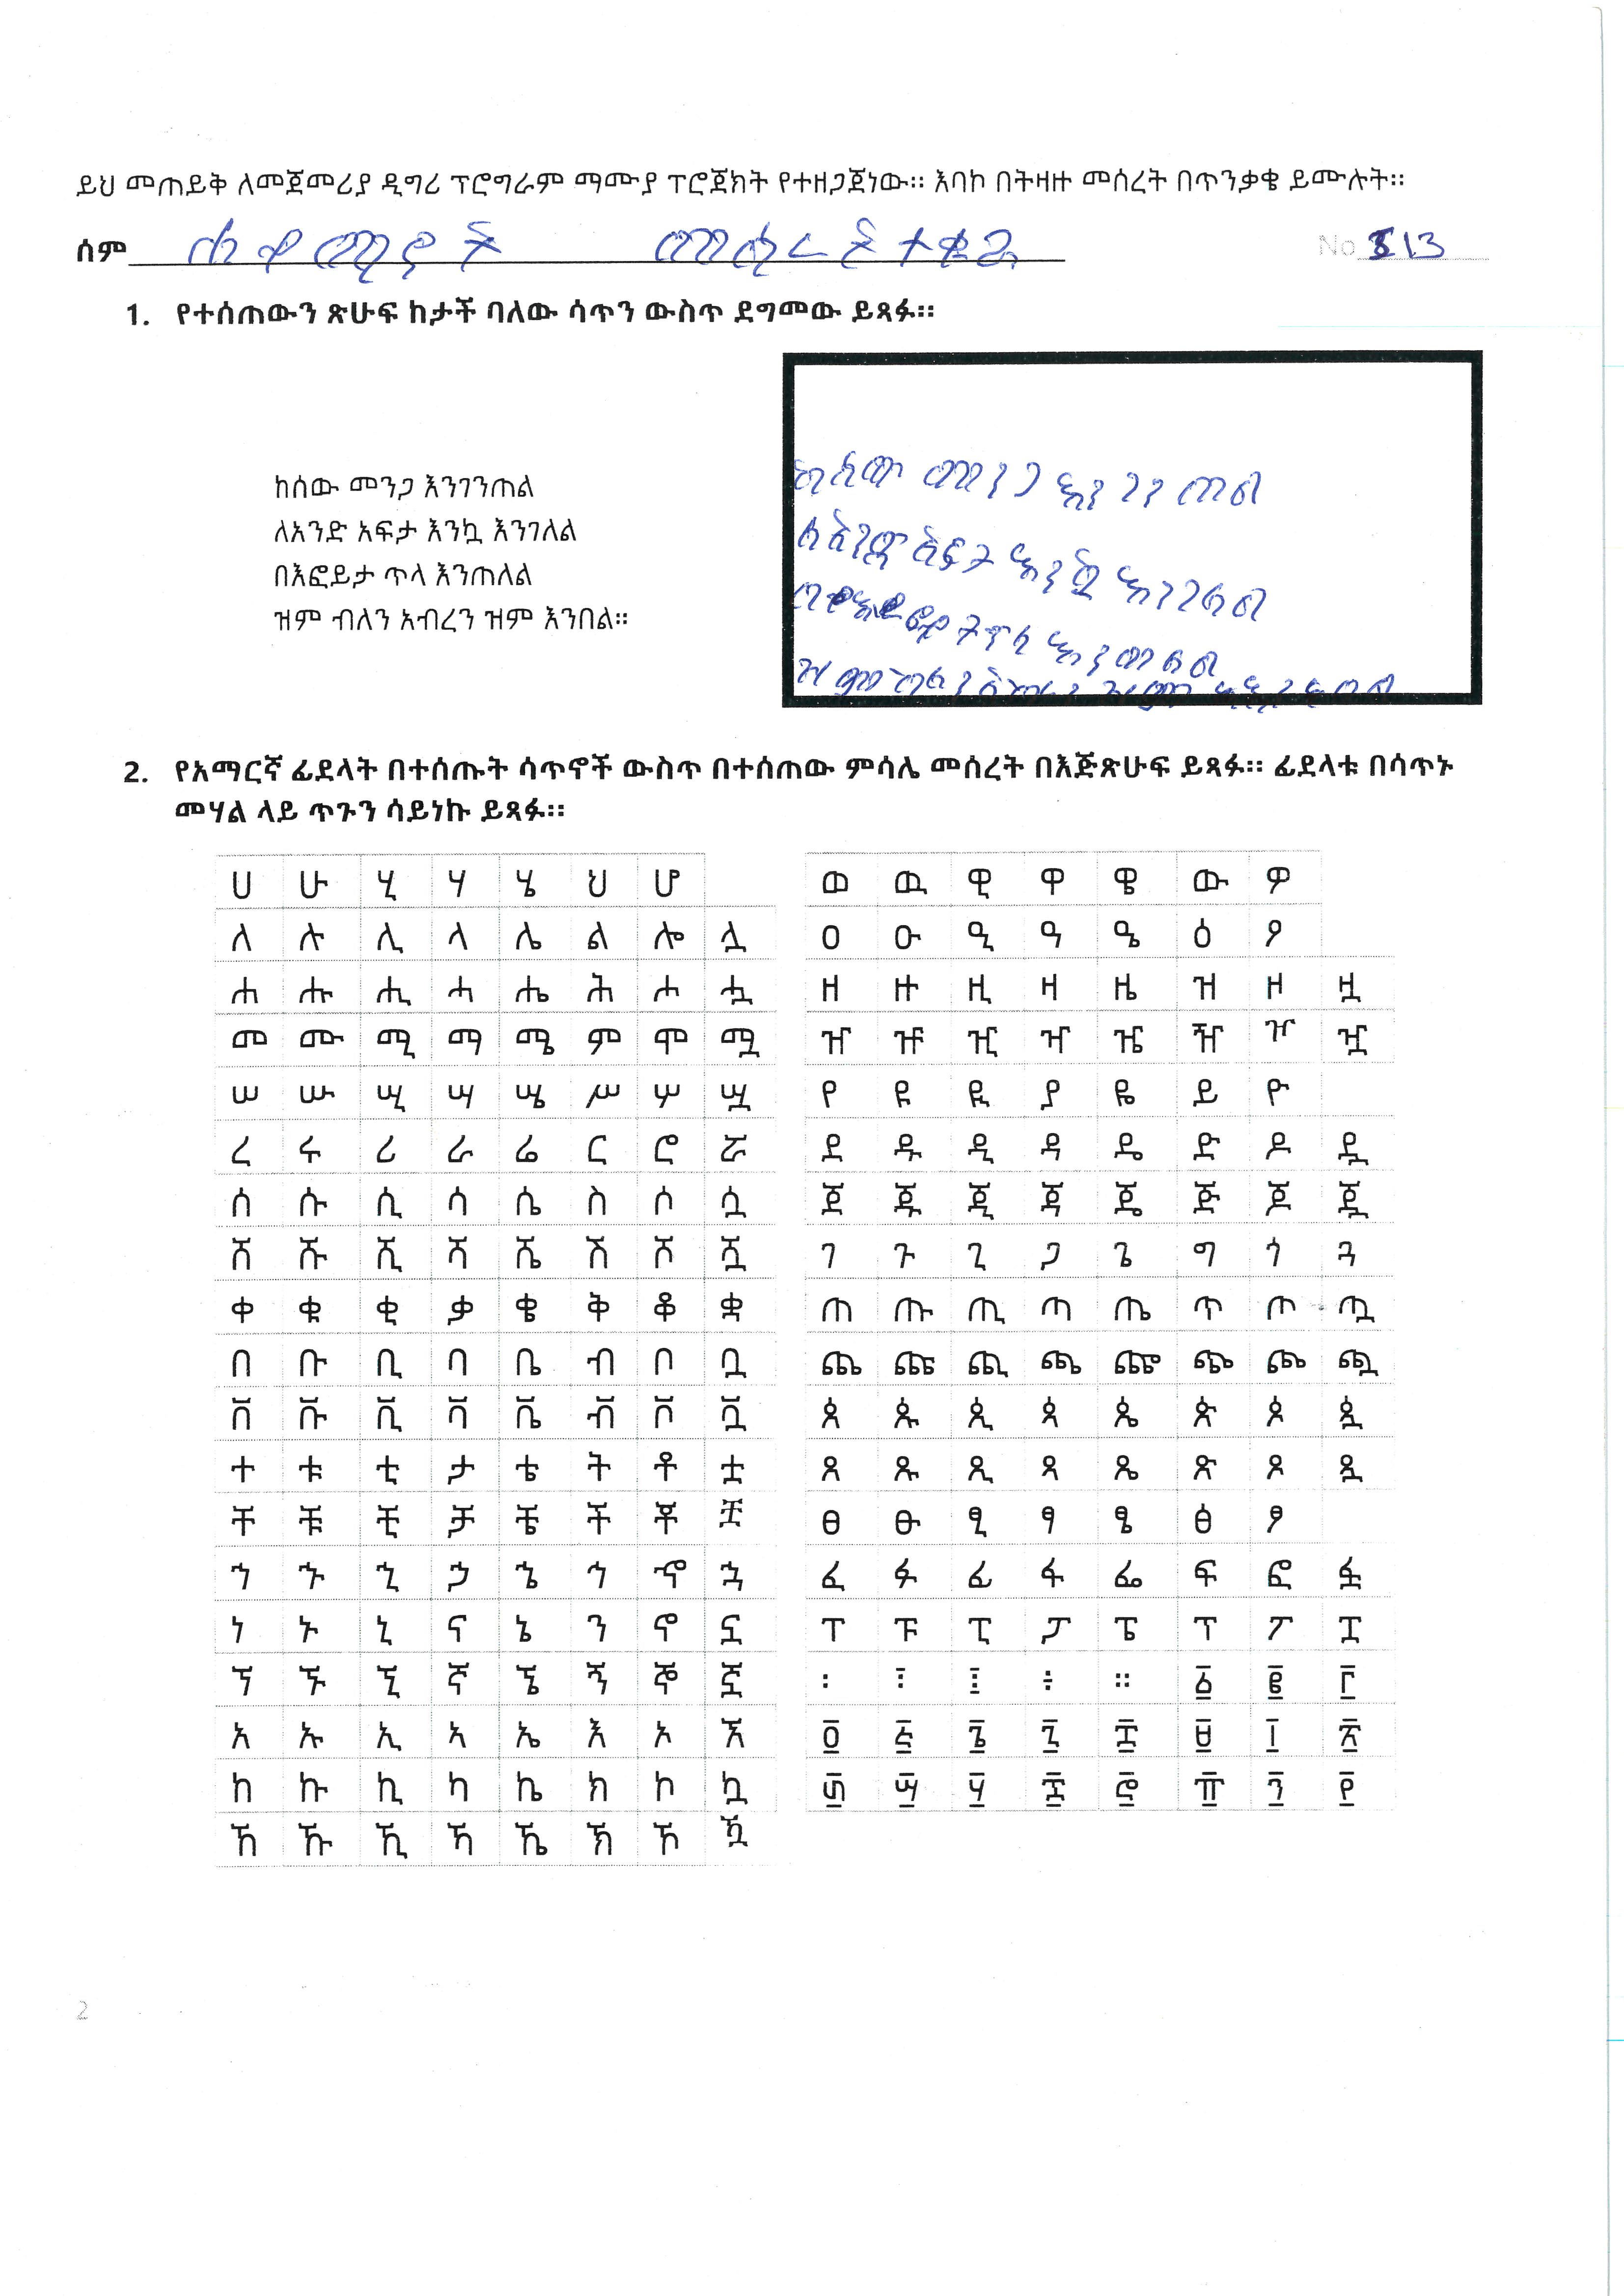 ይህ መጠይቅ ለመጀመሪያ ዲግሪ ፕሮግራም ማሙያ ፕሮጀክት የተዘጋጀነው። እባኮ በትዛዙ መሰረት በጥንቃቄ ይሙሉት።
ሰም No 813
1. የተሰጠውን ጽሁፍ ከታች ባለው ሳጥን ውስጥ ደግመው ይጻፉ።
ከሰው መንጋ እንገንጠል
ለአንድ አፍታ እንኳ እንገለል
በእፎይታ ጥላ እንጠለል
ዝም ብለን አብረን ዝም እንበል።
ከሰው መንጋ እንገንጠል
ለአንድ አፍታ እንኳ እንገለል
ፎይታ ጥላ እንጠለል
ዝም ብለን አብረን ዝም
2. የአማርኛ ፊደላት በተሰጡት ሳጥኖች ውስጥ በተሰጠው ምሳሌ መሰረት በእጅጽሁፍ ይጻፉ። ፊደላቱ በሳጥኑ
መሃል ላይ ጥጉን ሳይነኩ ይጻፉ።
ሀ ሁ ሂ ሃ ሄ ህ ሆ
ለ ሉ ሊ ላ ሌ ል ሎ ሏ
ሐ ሑ ሒ ሓ ሔ ሕ ሖ ሗ
መ ሙ ሚ ማ ሜ ም ሞ ሟ
ሠ ሡ ሢ ሣ ሤ ሥ ሦ ሧ
ረ ሩ ሪ ራ ሬ ር ሮ ሯ
ሰ ሱ ሲ ሳ ሴ ስ ሶ ሷ
ሸ ሹ ሺ ሻ ሼ ሽ ሾ ሿ
ቀ ቁ ቂ ቃ ቄ ቅ ቆ ቋ
በ ቡ ቢ ባ ቤ ብ ቦ ቧ
ቨ ቩ ቪ ቫ ቬ ቭ ቮ ቯ
ተ ቱ ቲ ታ ቴ ት ቶ ቷ
ቸ ቹ ቺ ቻ ቼ ች ቾ ቿ
ኀ ኁ ኂ ኃ ኄ ኅ ኆ ኋ
ነ ኑ ኒ ና ኔ ን ኖ ኗ
ኘ ኙ ኚ ኛ ኜ ኝ ኞ ኟ
አ ኡ ኢ ኣ ኤ እ ኦ ኧ
ከ ኩ ኪ ካ ኬ ክ ኮ ኳ
ኸ ኹ ኺ ኻ ኼ ኽ ኾ ዃ
ወ ዉ ዊ ዋ ዌ ው ዎ
ዐ ዑ ዒ ዓ ዔ ዕ ዖ
ዘ ዙ ዚ ዛ ዜ ዝ ዞ ዟ
ዠ ዡ ዢ ዣ ዤ ዥ ዦ ዧ
የ ዩ ዪ ያ ዬ ይ ዮ
ደ ዱ ዲ ዳ ዴ ድ ዶ ዷ
ጀ ጁ ጂ ጃ ጄ ጅ ጆ ጇ
ገ ጉ ጊ ጋ ጌ ግ ጎ ጓ
ጠ ጡ ጢ ጣ ጤ ጥ ጦ ጧ
ጨ ጩ ጪ ጫ ጬ ጭ ጮ ጯ
ጰ ጱ ጲ ጳ ጴ ጵ ጶ ጷ
ጸ ጹ ጺ ጻ ጼ ጽ ጾ ጿ
ፀ ፁ ፂ ፃ ፄ ፅ ፆ
ፈ ፉ ፊ ፋ ፌ ፍ ፎ ፏ
ፐ ፑ ፒ ፓ ፔ ፕ ፖ ፗ
፡ ፣ ፤ ÷ ። ፩ ፪ ፫
፬ ፭ ፮ ፯ ፰ ፱ ፲ ፳
፴ ፵ ፶ ፷ ፸ ፹ ፺ ፻
2